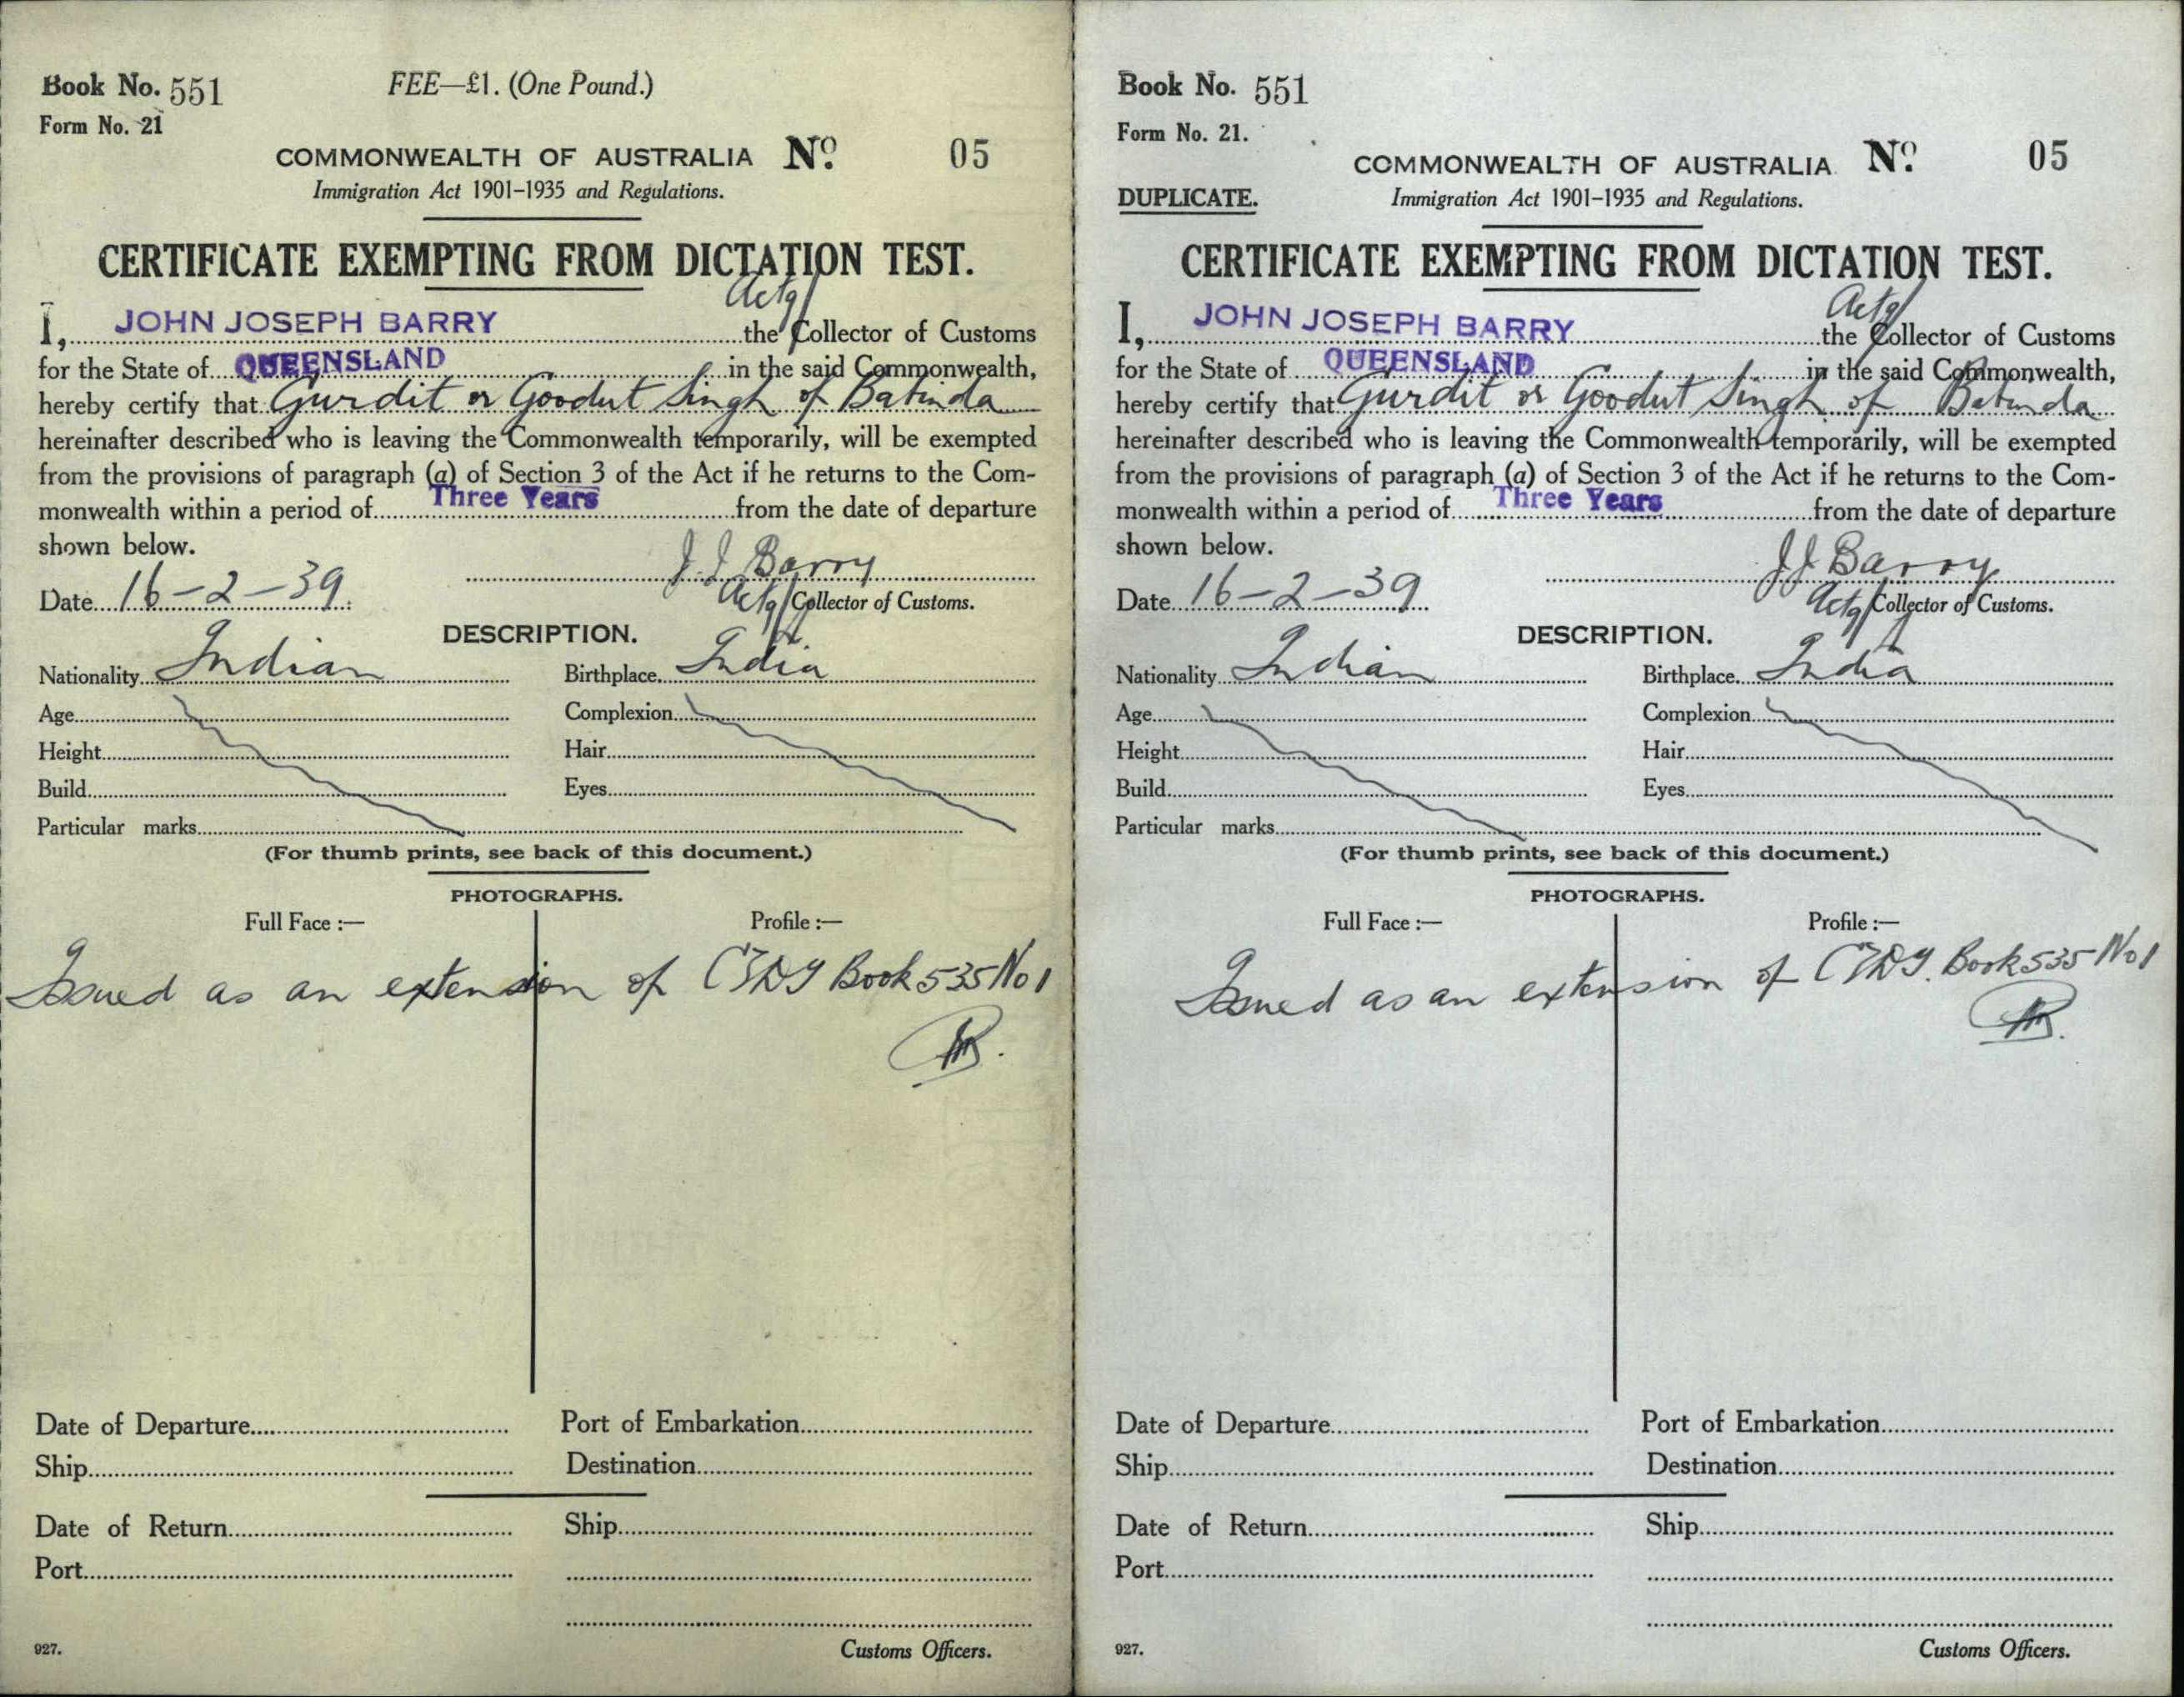 Book No. 551
FEE—£1. (One Pound.)
Form No. 21
COMMONWEALTH OF AUSTRALIA No. 05
Immigration Act 1901–1935 and Regulations.
CERTIFICATE EXEMPTING FROM DICTATION TEST.
Actg/
I, JOHN JOSEPH BARRY the Collector of Customs
for the State of QUEENSLAND in the said Commonwealth,
hereby certify that Gurdit or Goodut Singh of Babinda
hereinafter described who is leaving the Commonwealth temporarily, will be exempted
from the provisions of paragraph (a) of Section 3 of the Act if he returns to the Com-
monwealth within a period of Three Years from the date of departure
shown below.
J. J. Barry
Date 16-2-39. Actg/ Collector of Customs.
DESCRIPTION.
Nationality Indian Birthplace India
Age Complexion
Height Hair
Build Eyes
Particular marks
(For thumb prints, see back of this document.)
PHOTOGRAPHS.
Full Face :— Profile :—
Issued as an extension of CEDT Book 535 No 1
Date of Departure Port of Embarkation
Ship Destination
Date of Return Ship
Port
927. Customs Officers.
Book No. 551
Form No. 21.
COMMONWEALTH OF AUSTRALIA No. 05
DUPLICATE. Immigration Act 1901–1935 and Regulations.
CERTIFICATE EXEMPTING FROM DICTATION TEST.
Actg/
I, JOHN JOSEPH BARRY the Collector of Customs
for the State of QUEENSLAND in the said Commonwealth,
hereby certify that Gurdit or Goodut Singh of Babinda
hereinafter described who is leaving the Commonwealth temporarily, will be exempted
from the provisions of paragraph (a) of Section 3 of the Act if he returns to the Com-
monwealth within a period of Three Years from the date of departure
shown below.
J J Barry
Date 16-2-39 Actg/ Collector of Customs.
DESCRIPTION.
Nationality Indian Birthplace India
Age Complexion
Height Hair
Build Eyes
Particular marks
(For thumb prints, see back of this document.)
PHOTOGRAPHS.
Full Face :— Profile :—
Issued as an extension of CEDT. Book 535 No 1
Date of Departure Port of Embarkation
Ship Destination
Date of Return Ship
Port
927. Customs Officers.